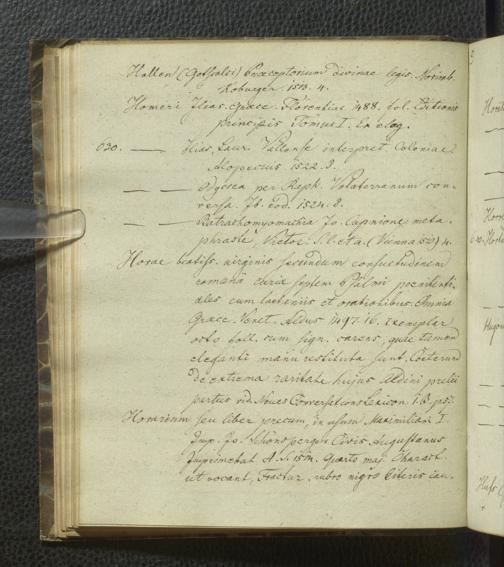 Hollen (Gotschalci) Praeceptorium divinae legis. Norimb.
Koburger 1503. 4.
Homeri Ilias, graece. Florentiae 1488. fol. Editionis
principis Tomus I. En eleg.
020. — Ilias, Laur. Vallense interpret. Coloniae
Alopecius 1522. 8.
— — Odyssea per Raph. Volaterranum con-
versa. Ib. eod. 1524. 8.
— — Batrachomyomachia Jo. Capnione meta-
phraste, Victor. S. l. et a. (Vienna 1510) 4.
Horae beatiss. virginis secundum consuetudinem
romanae curiae septem Psalmi poenitenti-
ales cum laetaniis et orationibus. Omnia
Graec. Venet. Aldus 1497. 16. Exemplar
octo foll. cum sign. carens, quae tamen
eleganti manu restituta sunt. Coeterum
de extrema raritate hujus Aldini pretii
partus vid. Neues Conversations Lexicon. 1. B. p.
Horarium seu liber precum, in usum Maximiliani I.
Imp. Jo. Schönsperger Civis Augustanus
Imprimebat A. S. Quarto maj. Charact.
ut vocant, Fractur, rubro nigro literis cau-